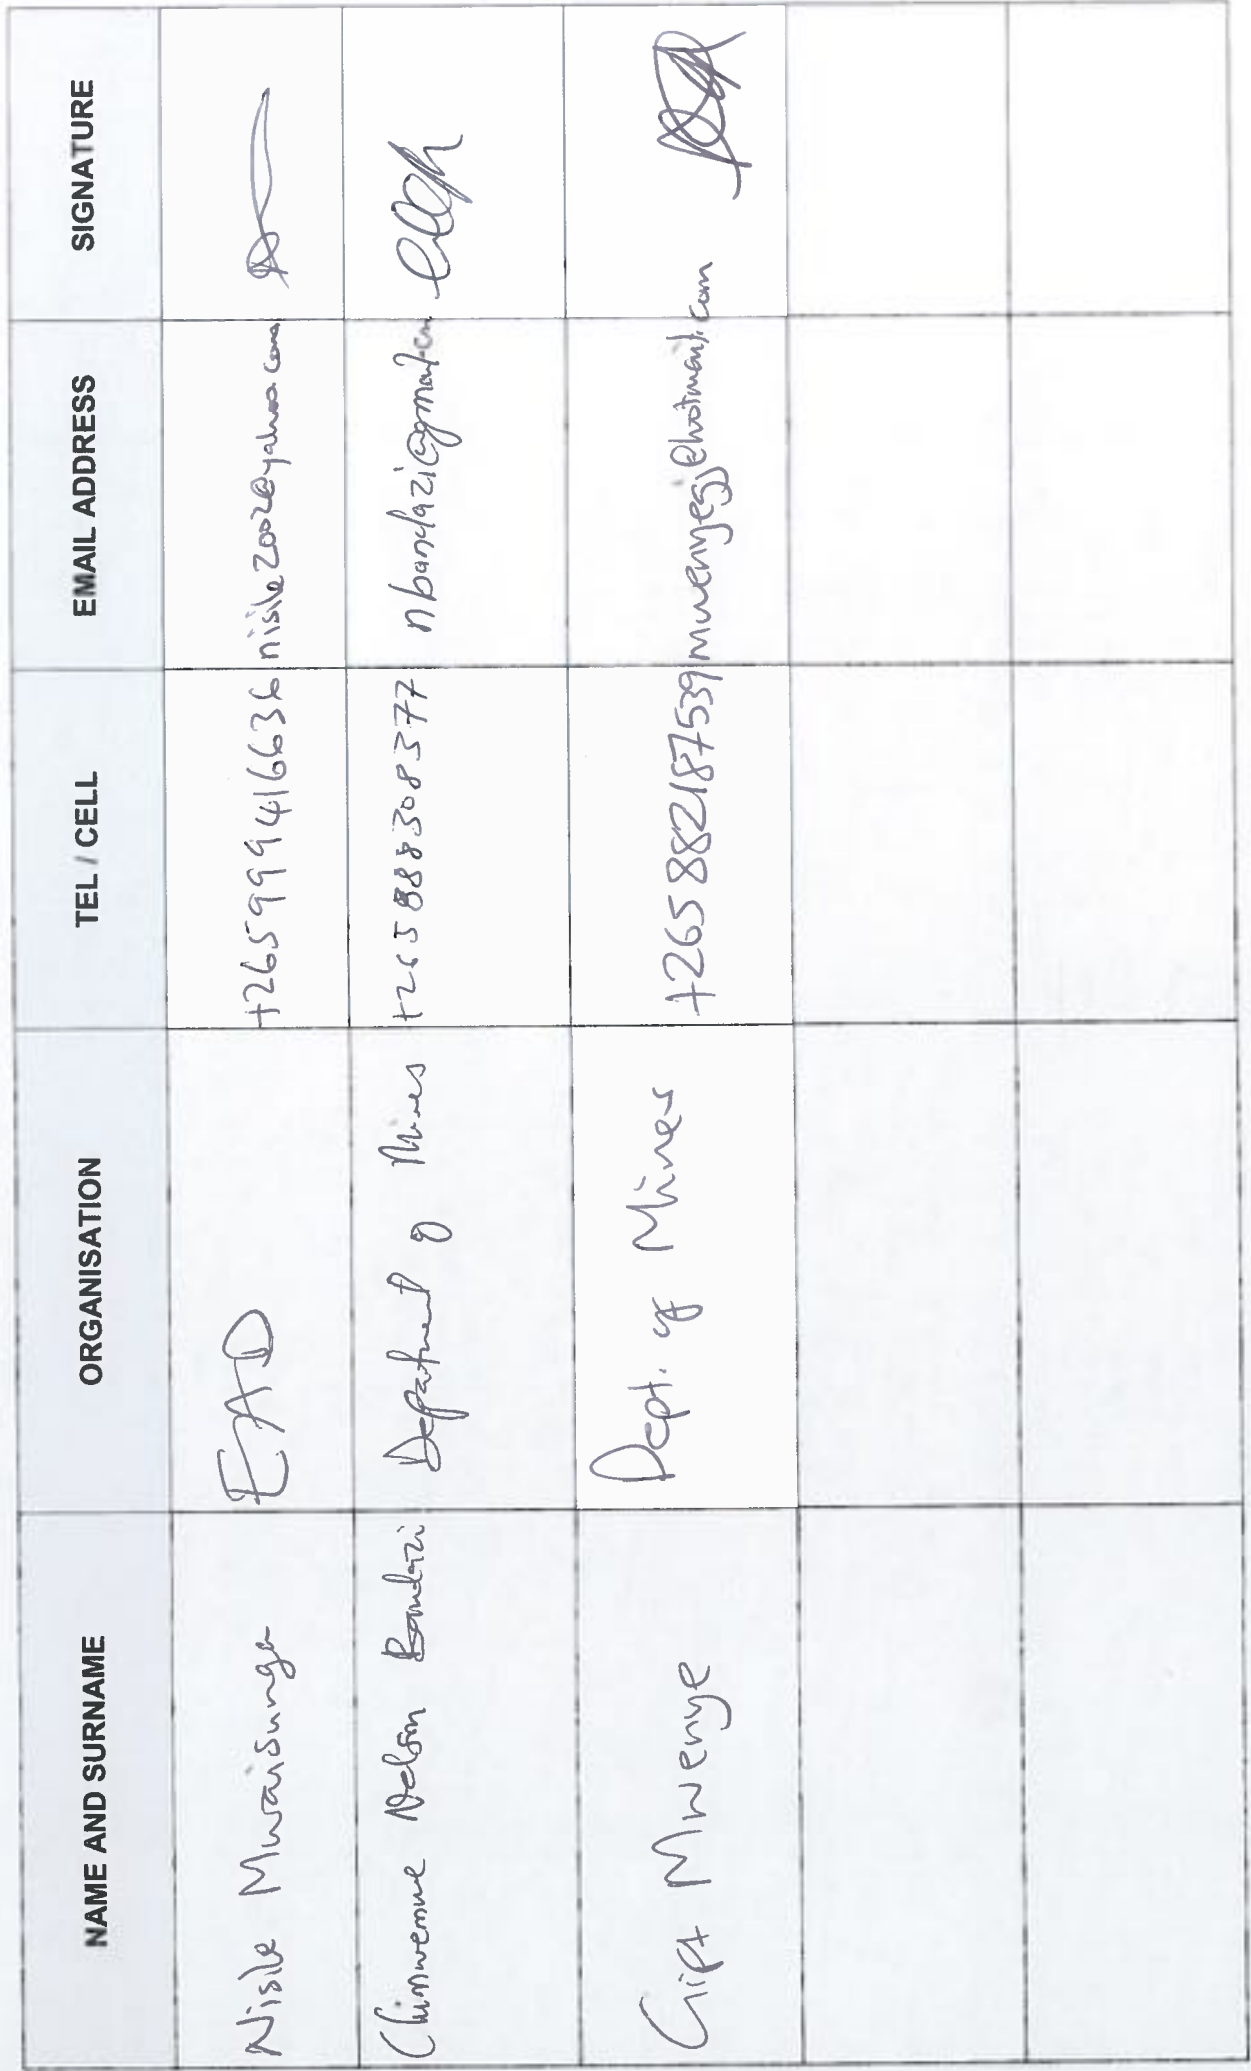 NAME AND SURNAME ORGANISATION TEL / CELL EMAIL ADDRESS SIGNATURE
Nisile Mwaisunga EAD +265999416636 nisile2002@yahoo.com
Chimwemwe Nelson Bandazi Department of Mines +265888308377 nbandazi@gmail.com
Gift Mwenye Dept. of Mines +265882187539 mwenyegj@hotmail.com